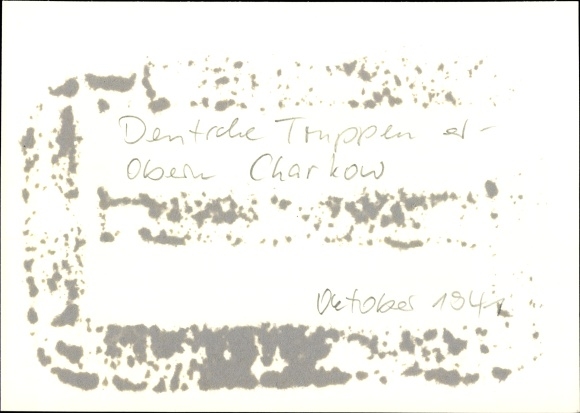 Deutsche Truppen er-
obern Charkow
Oktober 1941